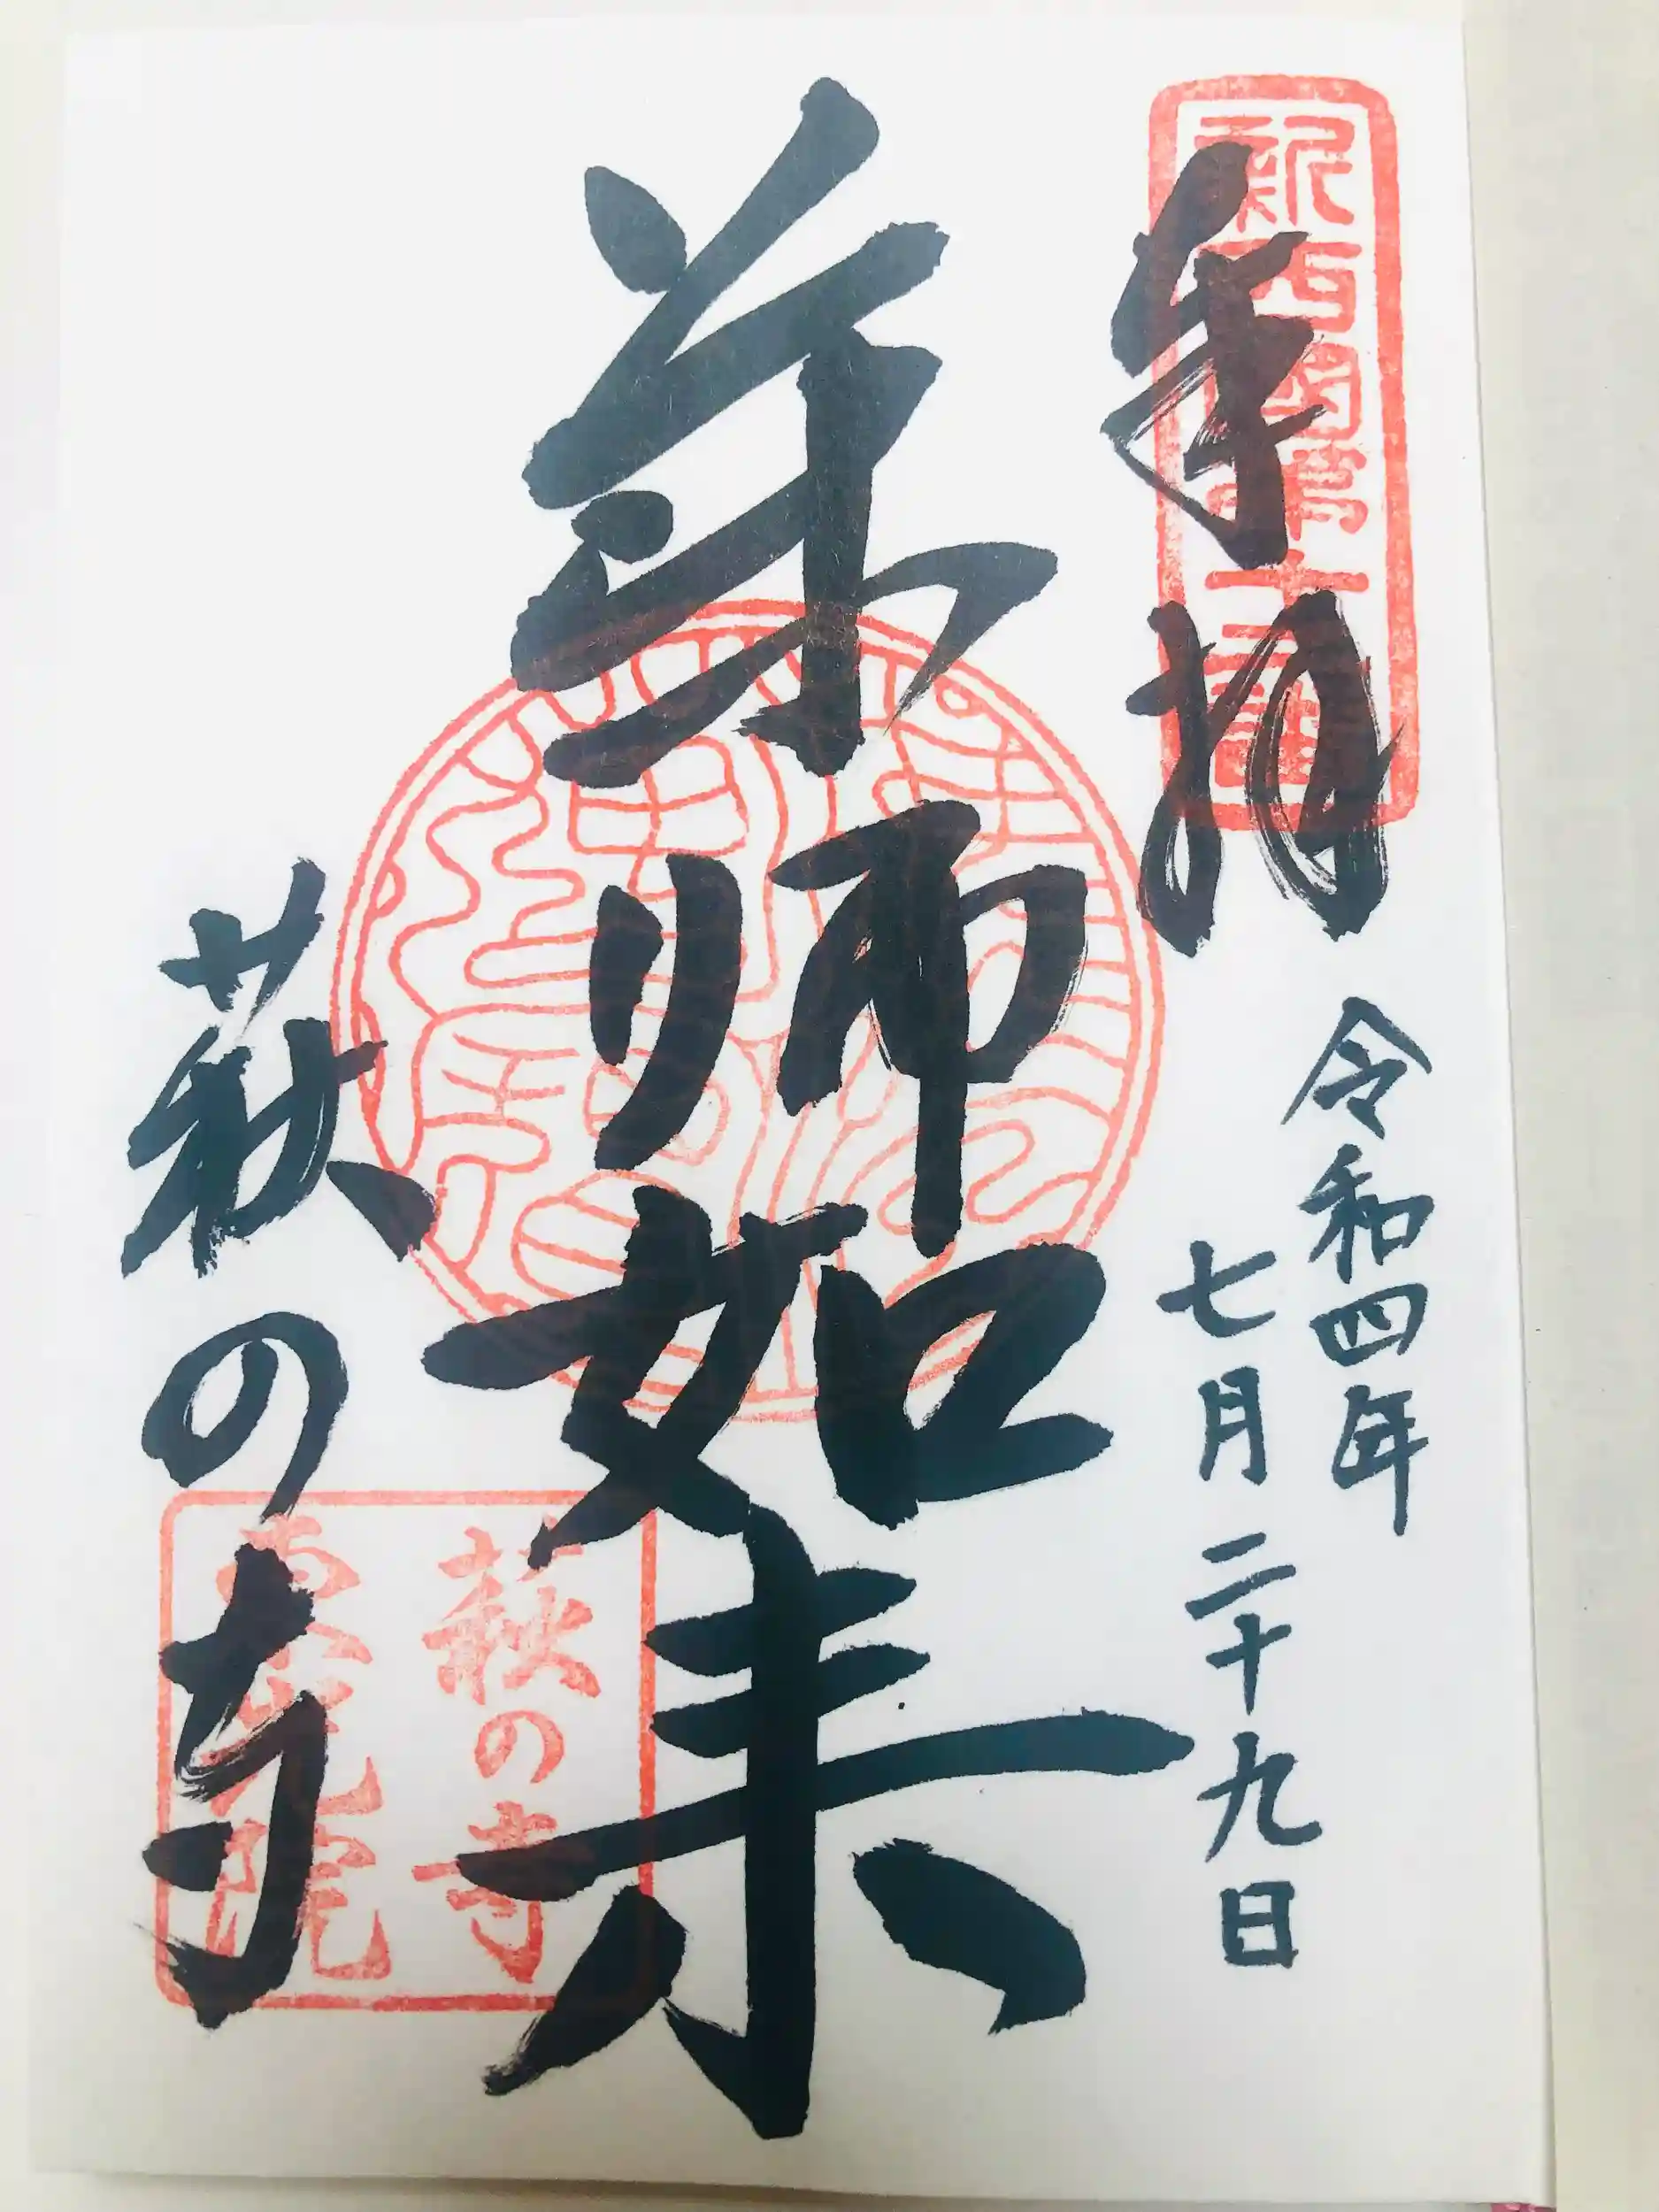 奉拝
新西国第十二番
令和四年
七月二十九日
薬師如来
萩の寺
萩の寺